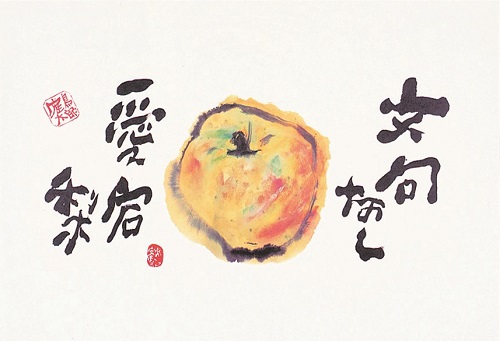 文句
なし
愛宕
梨